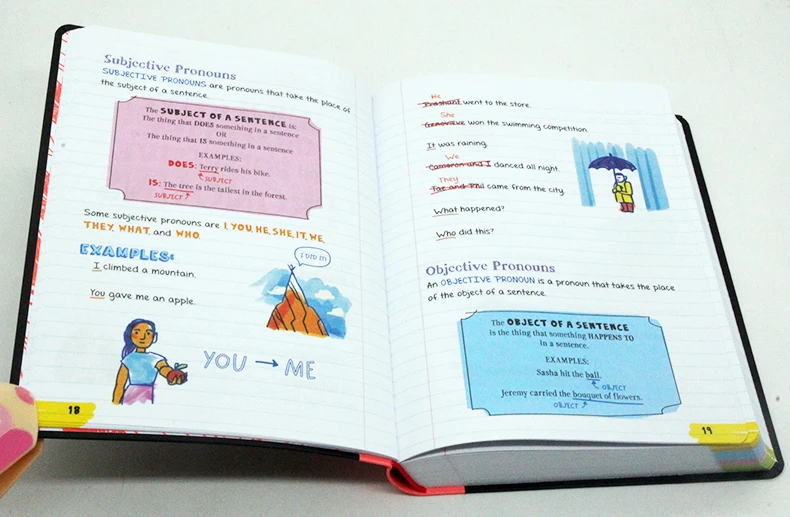 Subjective Pronouns
SUBJECTIVE PRONOUNS are pronouns that take the place of
the subject of a sentence.
The SUBJECT OF A SENTENCE is:
The thing that DOES something in a sentence
OR
The thing that IS something in a sentence
EXAMPLES:
DOES: Terry rides his bike.
SUBJECT
IS: The tree is the tallest in the forest.
SUBJECT
Some subjective pronouns are I, YOU, HE, SHE, IT, WE,
THEY, WHAT, and WHO.
EXAMPLES:
I climbed a mountain.
I DID IT!
You gave me an apple.
YOU → ME
18
He
went to the store.
She
Genevieve won the swimming competition.
It was raining.
We
Cameron and I danced all night.
They
Tae and Phil came from the city.
What happened?
Who did this?
Objective Pronouns
An OBJECTIVE PRONOUN is a pronoun that takes the place
of the object of a sentence.
The OBJECT OF A SENTENCE
is the thing that something HAPPENS TO
in a sentence.
EXAMPLES:
Sasha hit the ball.
OBJECT
Jeremy carried the bouquet of flowers.
OBJECT
19